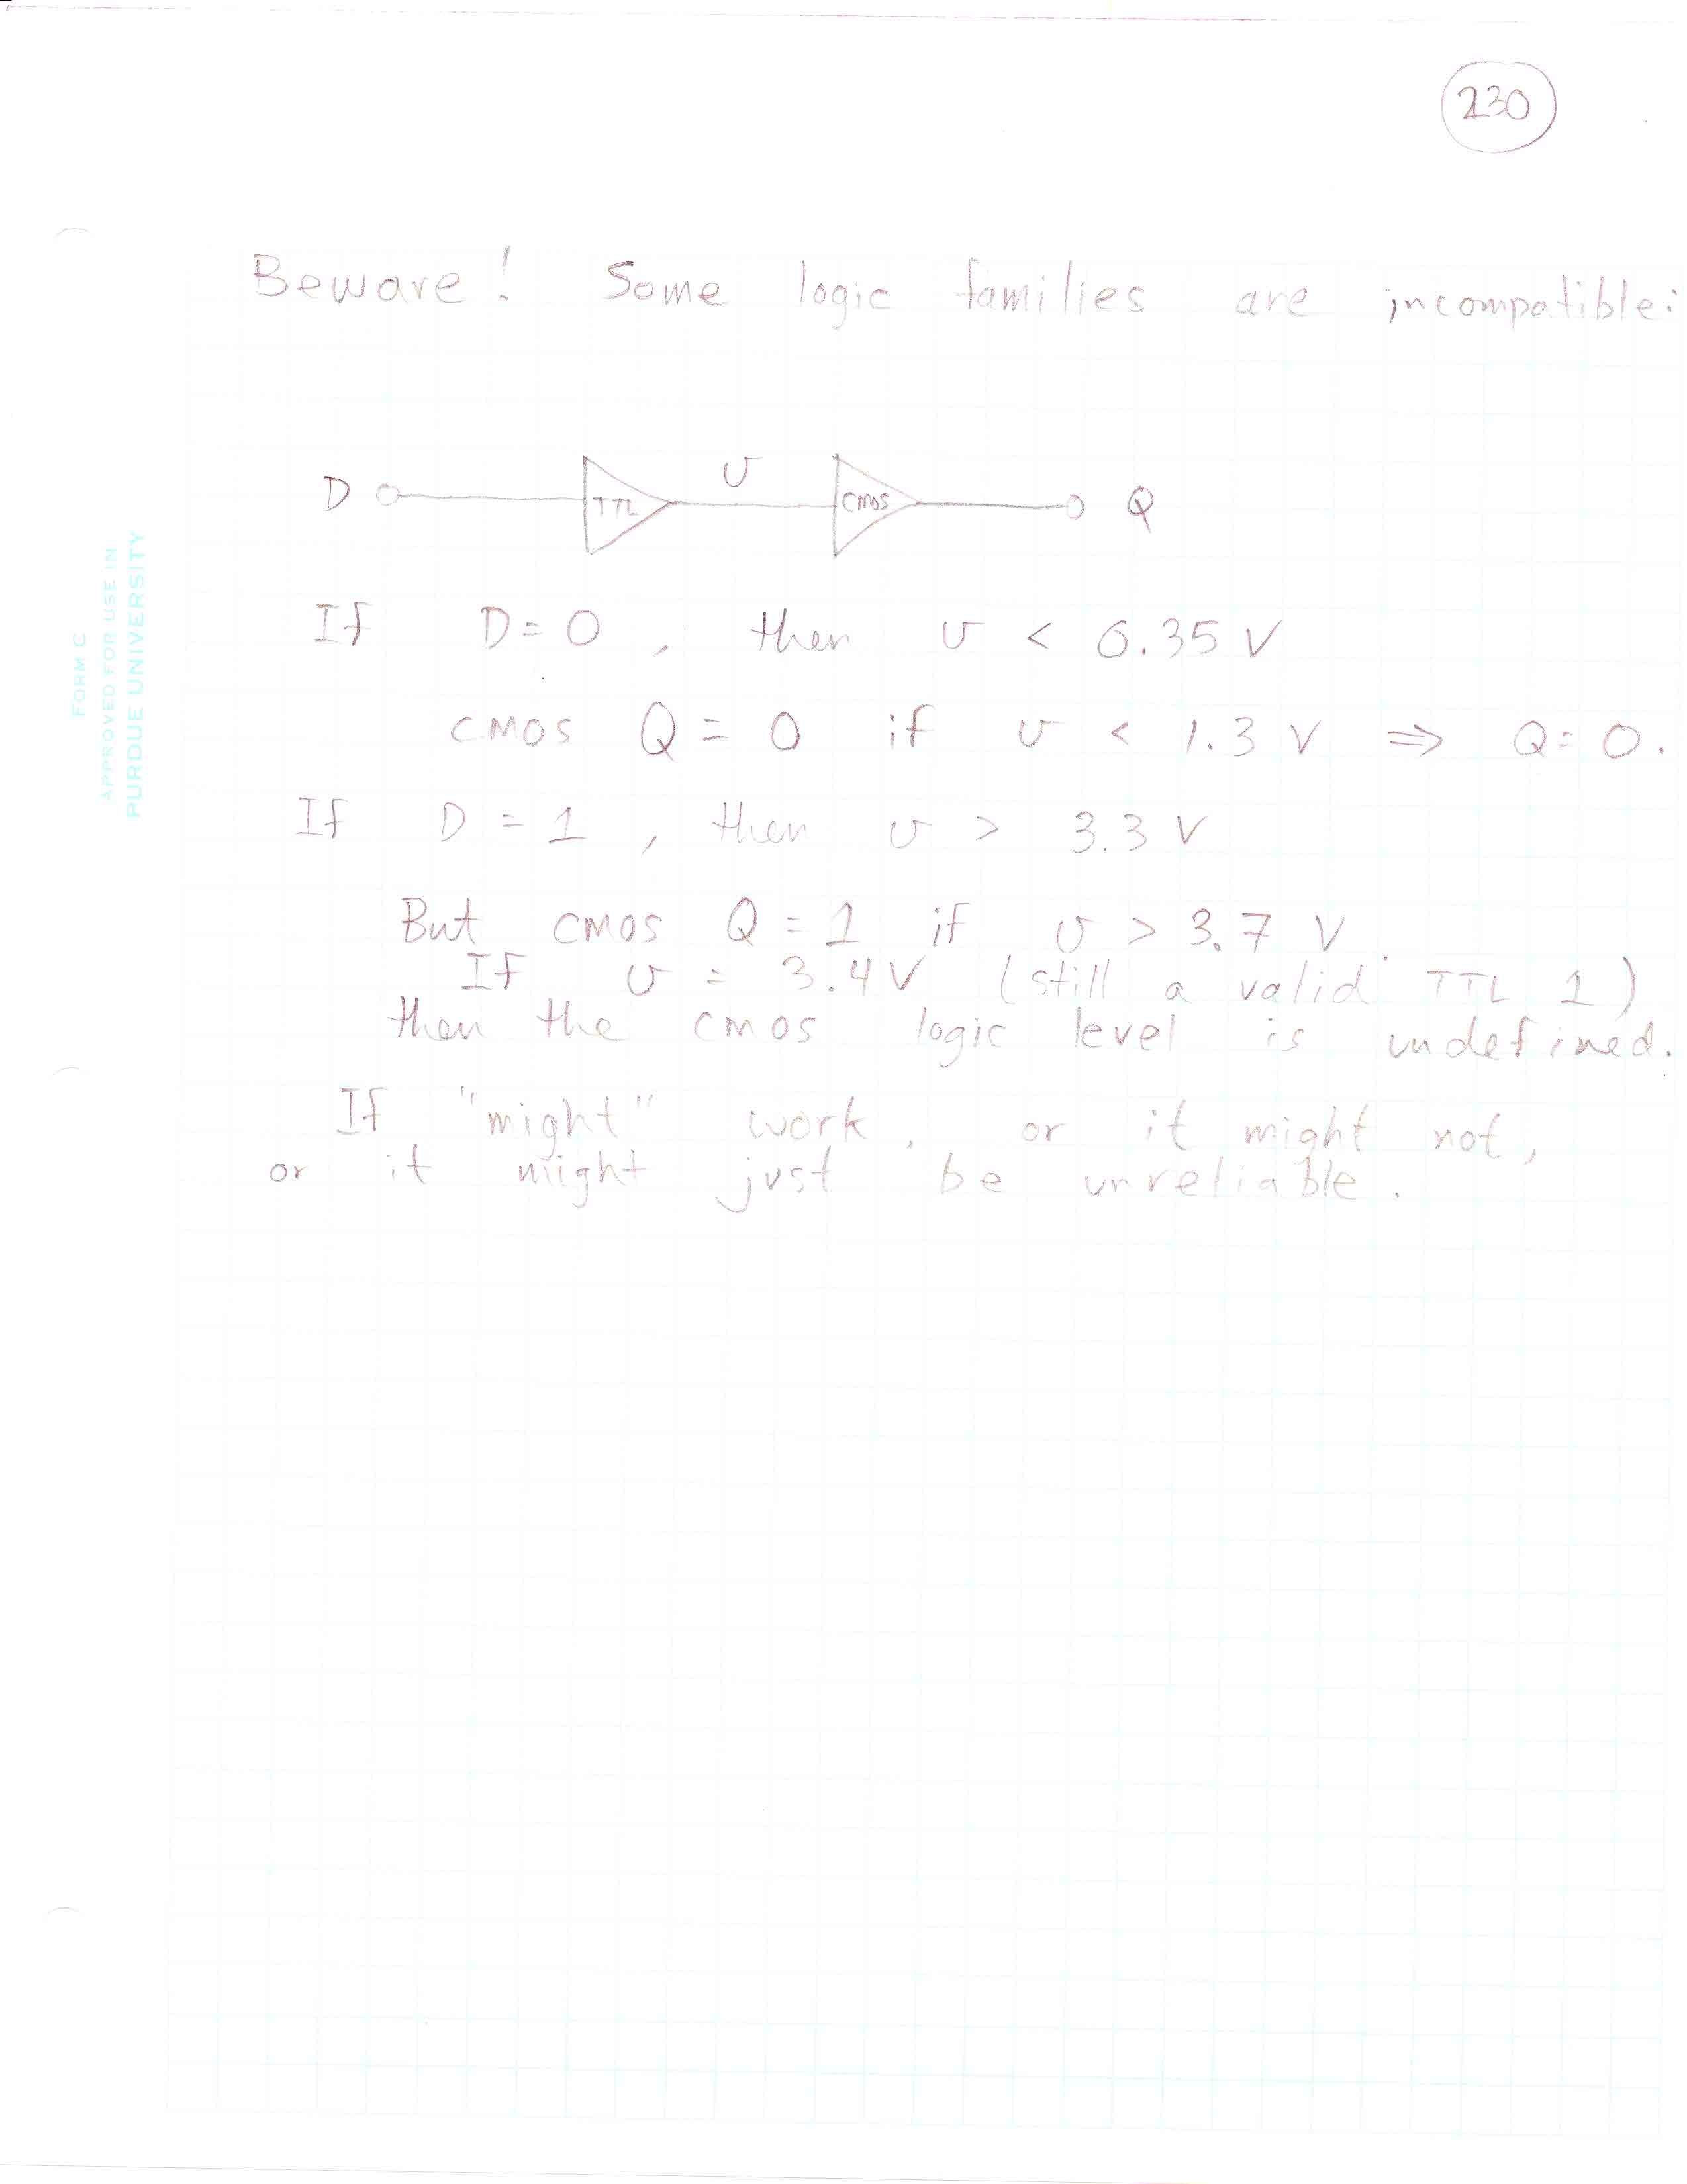 230
Beware! Some logic families are incompatible:
D TTL v CMOS Q
If D=0, then v < 0.35 V
CMOS Q = 0 if v < 1.3 V ⇒ Q=0.
If D = 1, then v > 3.3 V
But CMOS Q = 1 if v > 3.7 V.
If v = 3.4V (still a valid TTL 1)
then the CMOS logic level is undefined.
If "might" work, or it might not,
or it might just be unreliable.
FORM C
APPROVED FOR USE IN
PURDUE UNIVERSITY